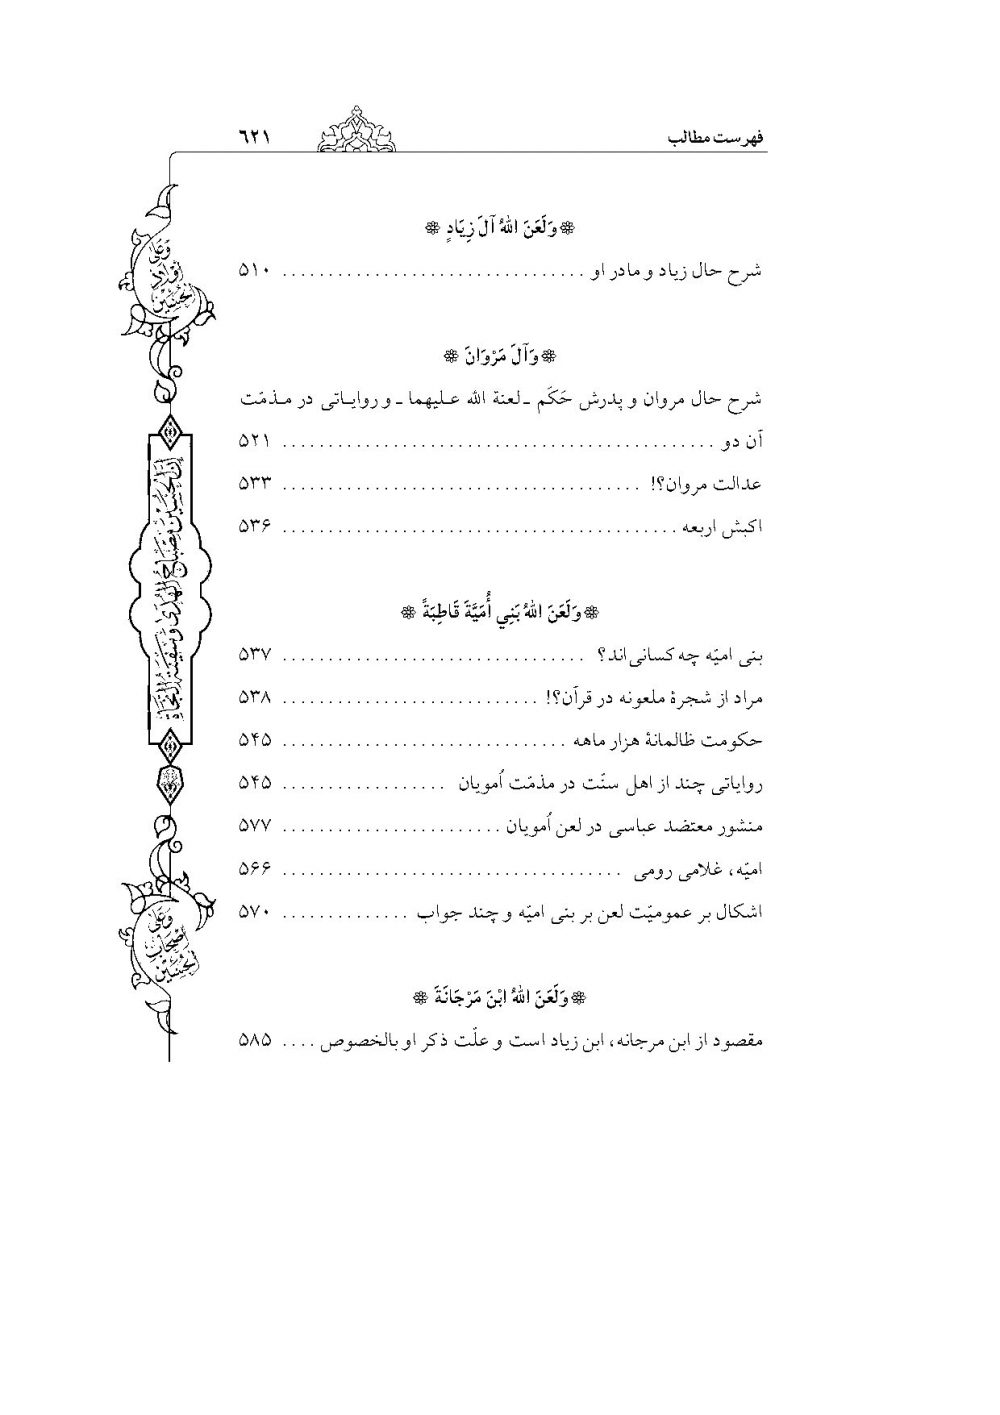 فهرست مطالب ٦٢١
❁ وَلَعَنَ اللهُ آلَ زِيَادٍ ❁
شرح حال زیاد و مادر او . . . . . . . . . . ۵۱۰
❁ وَآلَ مَرْوَانَ ❁
شرح حال مروان و پدرش حَکَم ـ لعنة الله عـلیهما ـ و روایـاتی در مـذمّت
آن دو . . . . . . . . . . ۵۲۱
عدالت مروان؟! . . . . . . . . . . ۵۳۳
اکبش اربعه . . . . . . . . . . ۵۳۶
❁ وَلَعَنَ اللهُ بَنِي أُمَيَّةَ قَاطِبَةً ❁
بنی امیّه چه کسانی‌اند؟ . . . . . . . . . . ۵۳۷
مراد از شجرهٔ ملعونه در قرآن؟! . . . . . . . . . . ۵۳۸
حکومت ظالمانهٔ هزار ماهه . . . . . . . . . . ۵۴۵
روایاتی چند از اهل سنّت در مذمّت اُمویان . . . . . . . . . . ۵۴۵
منشور معتضد عباسی در لعن اُمویان . . . . . . . . . . ۵۷۷
امیّه، غلامی رومی . . . . . . . . . . ۵۶۶
اشکال بر عمومیّت لعن بر بنی امیّه و چند جواب . . . . . . . . . . ۵۷۰
❁ وَلَعَنَ اللهُ ابْنَ مَرْجَانَةَ ❁
مقصود از ابن مرجانه، ابن زیاد است و علّت ذکر او بالخصوص . . . . ۵۸۵
وَعَلى
أَوْلادِ
الْحُسَيْنِ
إِنَّ الْحُسَيْنَ مِصْبَاحُ الْهُدىٰ وَسَفِينَةُ النَّجَاةِ
وَعَلى
أَصْحَابِ
الْحُسَيْنِ